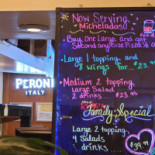 Now Serving
Micheladas!
Buy One Large and get
Second any size Pizza
Large 1 topping and
wings for $23.
Medium 2 topping
Large Salad
2 drinks $23.
Family Special
Large 2 topping
4 Salads
4 drinks
PERONI
ITALY